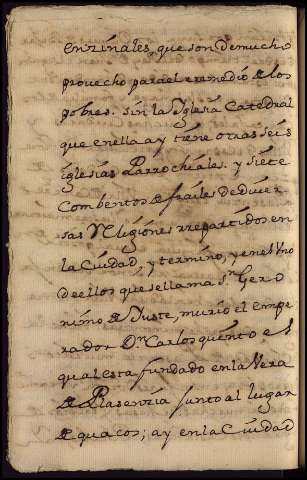 enzinales, que son de mucho
provecho para el rremedio de los
pobres. sin la Yglesia Catedral
que en ella ay tiene otras seis
iglesias Parrochiales. y siete
Combentos de frailes de diver
sas Religiones rrepartidos en
la Ciudad, y termino, y en el Uno
de ellos que se llama Sn Gero
nimo de Yuste, murio el empe
rador Dn Carlos quinto el
qual esta fundado en la Vera
de Plasenzia junto al lugar
de quacos; ay en la Ciudad